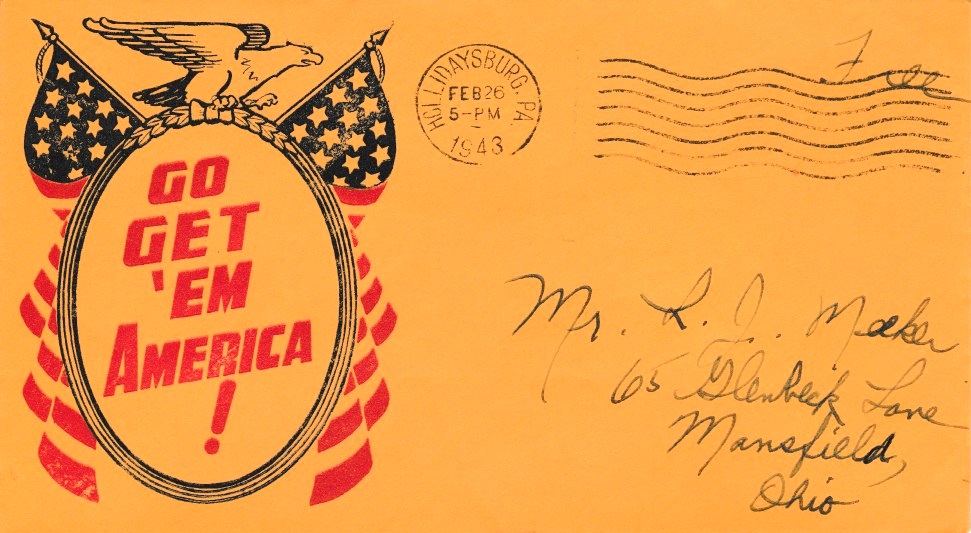 GO
GET
'EM
AMERICA
!
HOLLIDAYSBURG, PA.
FEB 26
5-PM
1943
Free
Mr. L. J. Meeker
65 Glenbeck Lane
Mansfield,
Ohio